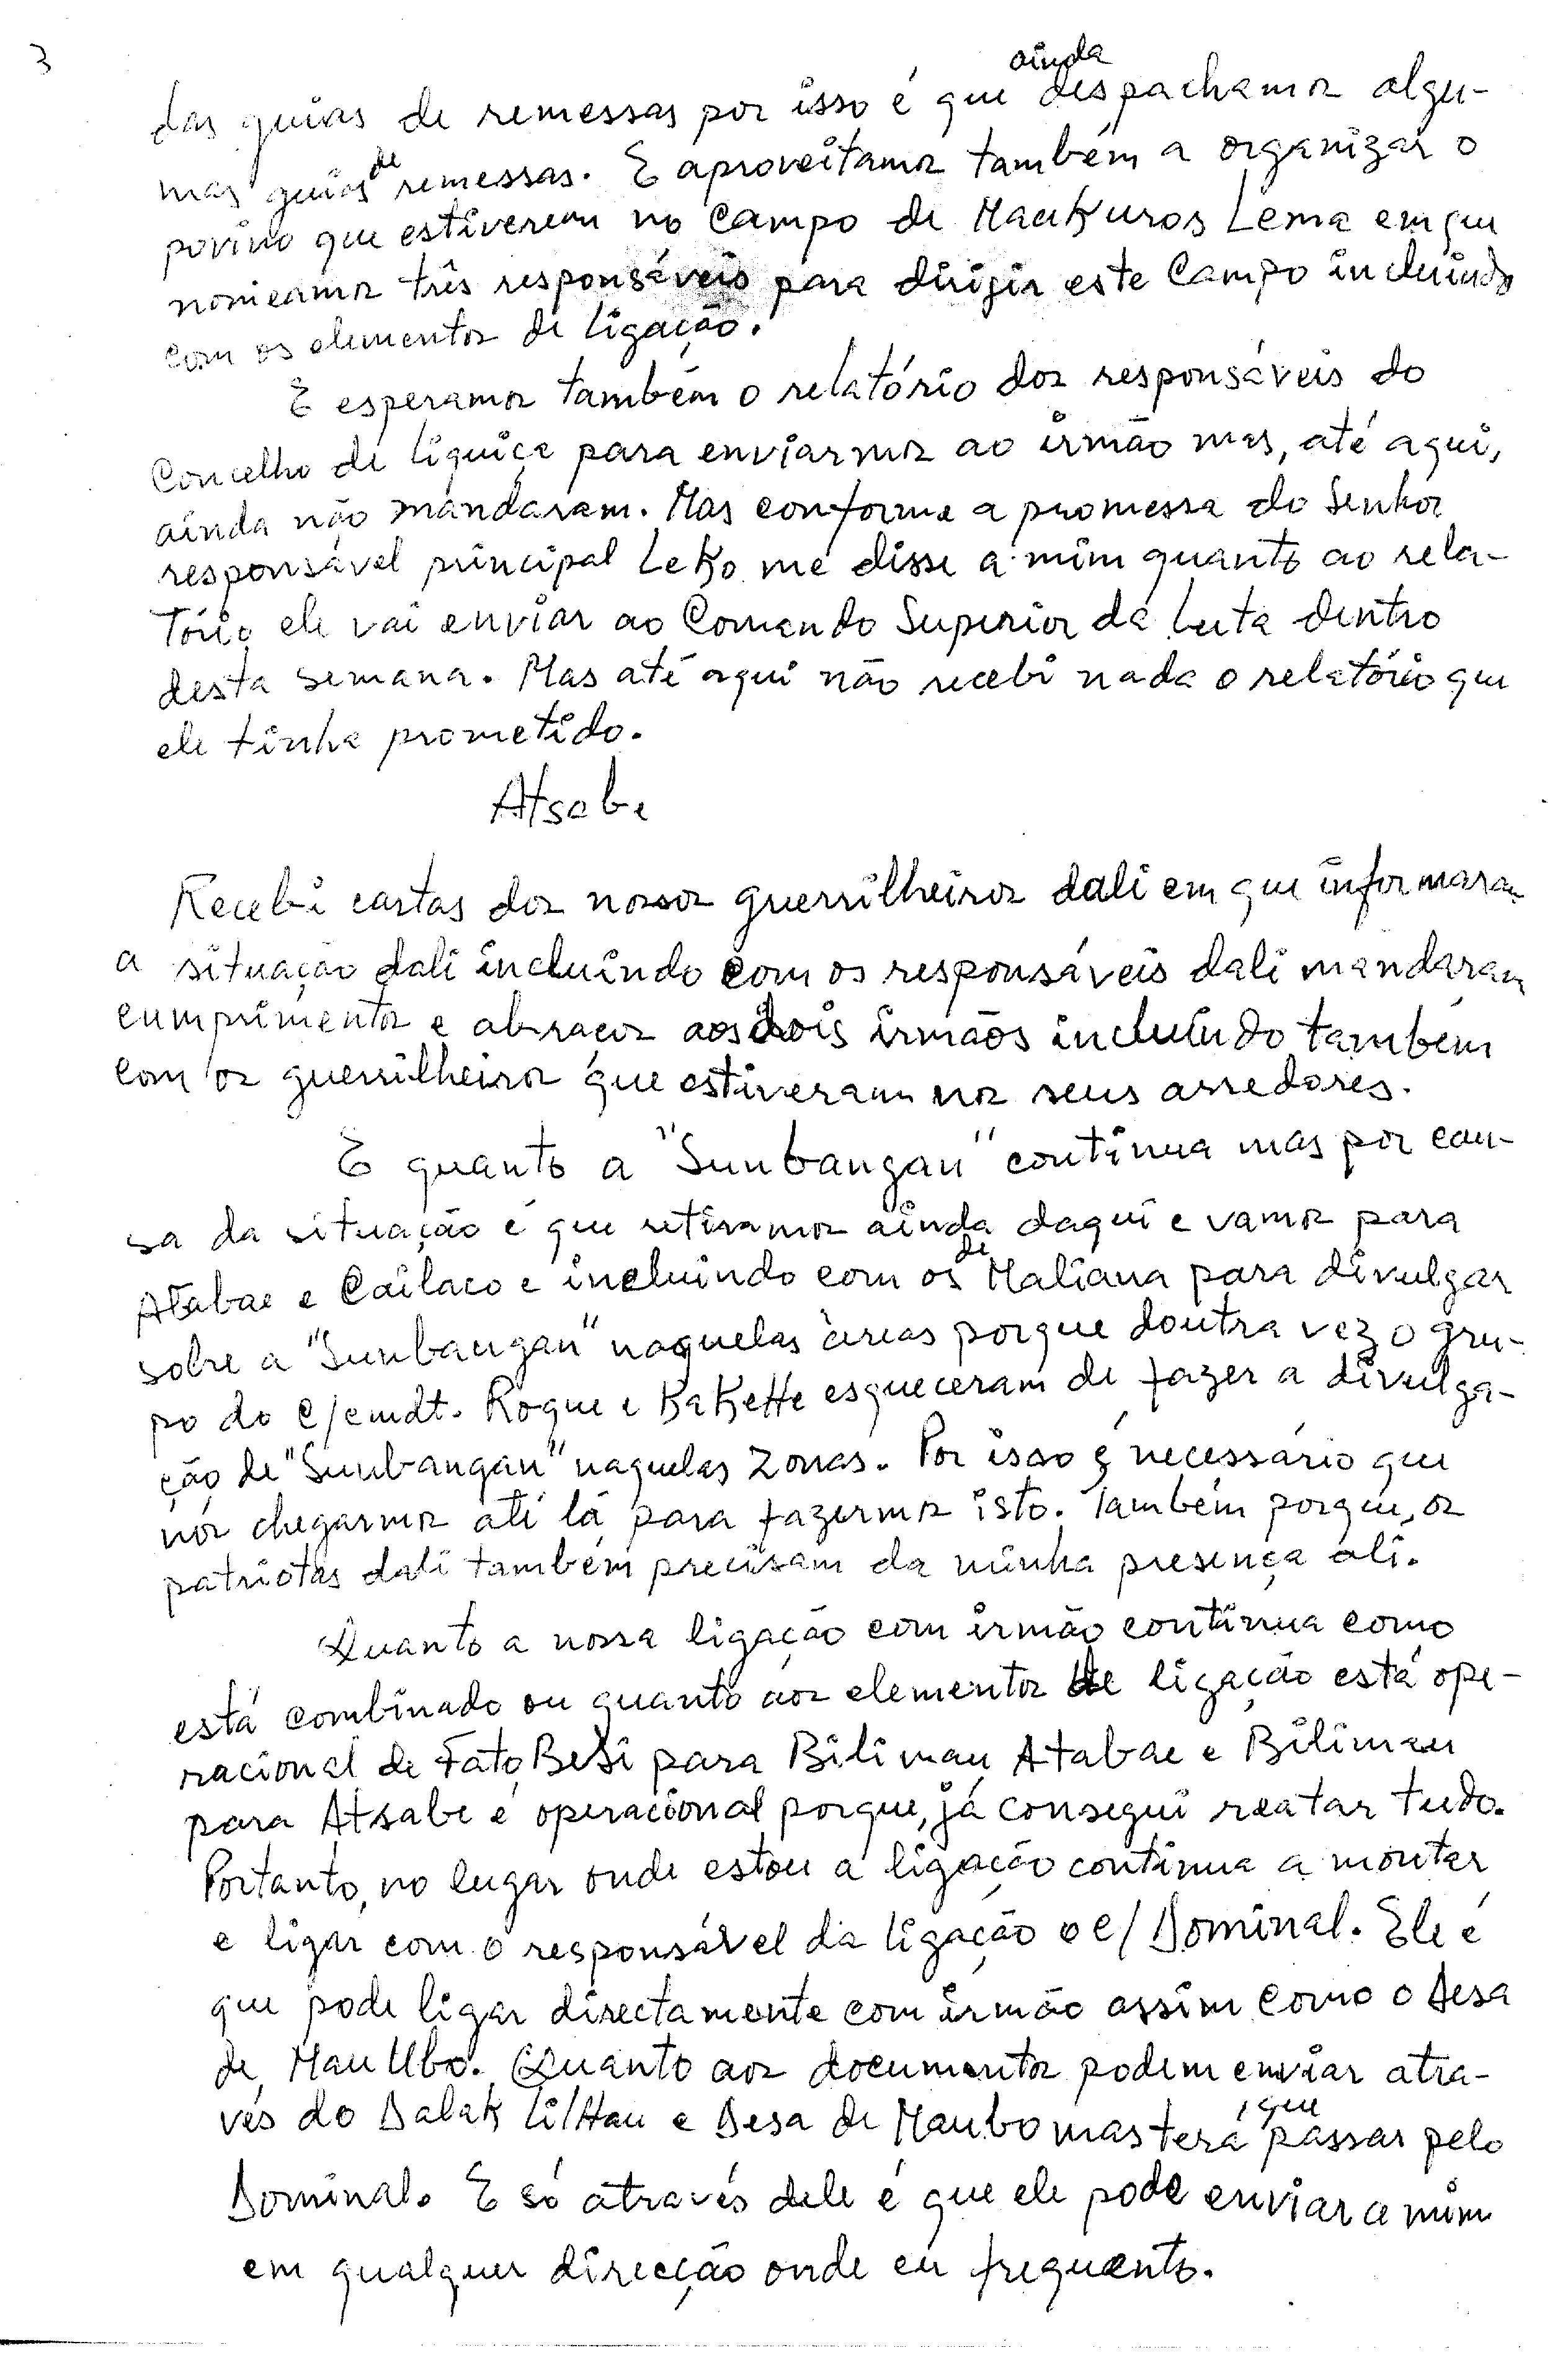 3
das guias de remessas por isso é que ainda despachamos algu-
mas guias de remessas. E aproveitamos também a organizar o
povinho que estiverem no Campo de Maukuros Lema em que
nomeamos três responsáveis para dirigir este Campo incluindo
com os elementos de ligação.
E esperamos também o relatório dos responsáveis do
Concelho de Liquiça para enviarmos ao irmão mas, até aqui,
ainda não mandaram. Mas conforme a promessa do Senhor
responsável principal Leko me disse a mim quanto ao rela-
tório ele vai enviar ao Comando Superior da Luta dentro
desta semana. Mas até aqui não recebi nada o relatório que
ele tinha prometido.
Atsabe
Recebi cartas dos nossos guerrilheiros dali em que informaram
a situação dali incluindo com os responsáveis dali mandaram
cumprimentos e abraços aos dois irmãos incluindo também
com os guerrilheiros que estiveram nos seus arredores.
E quanto a "Sunbangan" continua mas por cau-
sa da situação é que retiramos ainda daqui e vamos para
Atabae e Cailaco e incluindo com os de Maliana para divulgar
sobre a "Sunbangan" naquelas áreas porque doutra vez o gru-
po do C/cmdt. Roque e KaKette esqueceram de fazer a divulga-
ção de "Sunbangan" naquelas zonas. Por isso é necessário que
nós chegarmos até lá para fazermos isto. Também porque, os
patriotas dali também precisam da minha presença ali.
Quanto a nossa ligação com irmão continua como
está combinado ou quanto aos elementos de ligação está ope-
racional de Fato Besi para Bilimau Atabae e Bilimau
para Atsabe é operacional porque, já consegui reatar tudo.
Portanto, no lugar onde estou a ligação continua a montar
e ligar com o responsável da ligação o C/Dominal. Ele é
que pode ligar directamente com irmão assim como o Desa
de Mau Ubo. Quanto aos documentos podem enviar atra-
vés do Dalak Li/Hau e Desa de Maubo mas terá que passar pelo
Dominal. E só através dele é que ele pode enviar a mim
em qualquer direcção onde eu frequento.